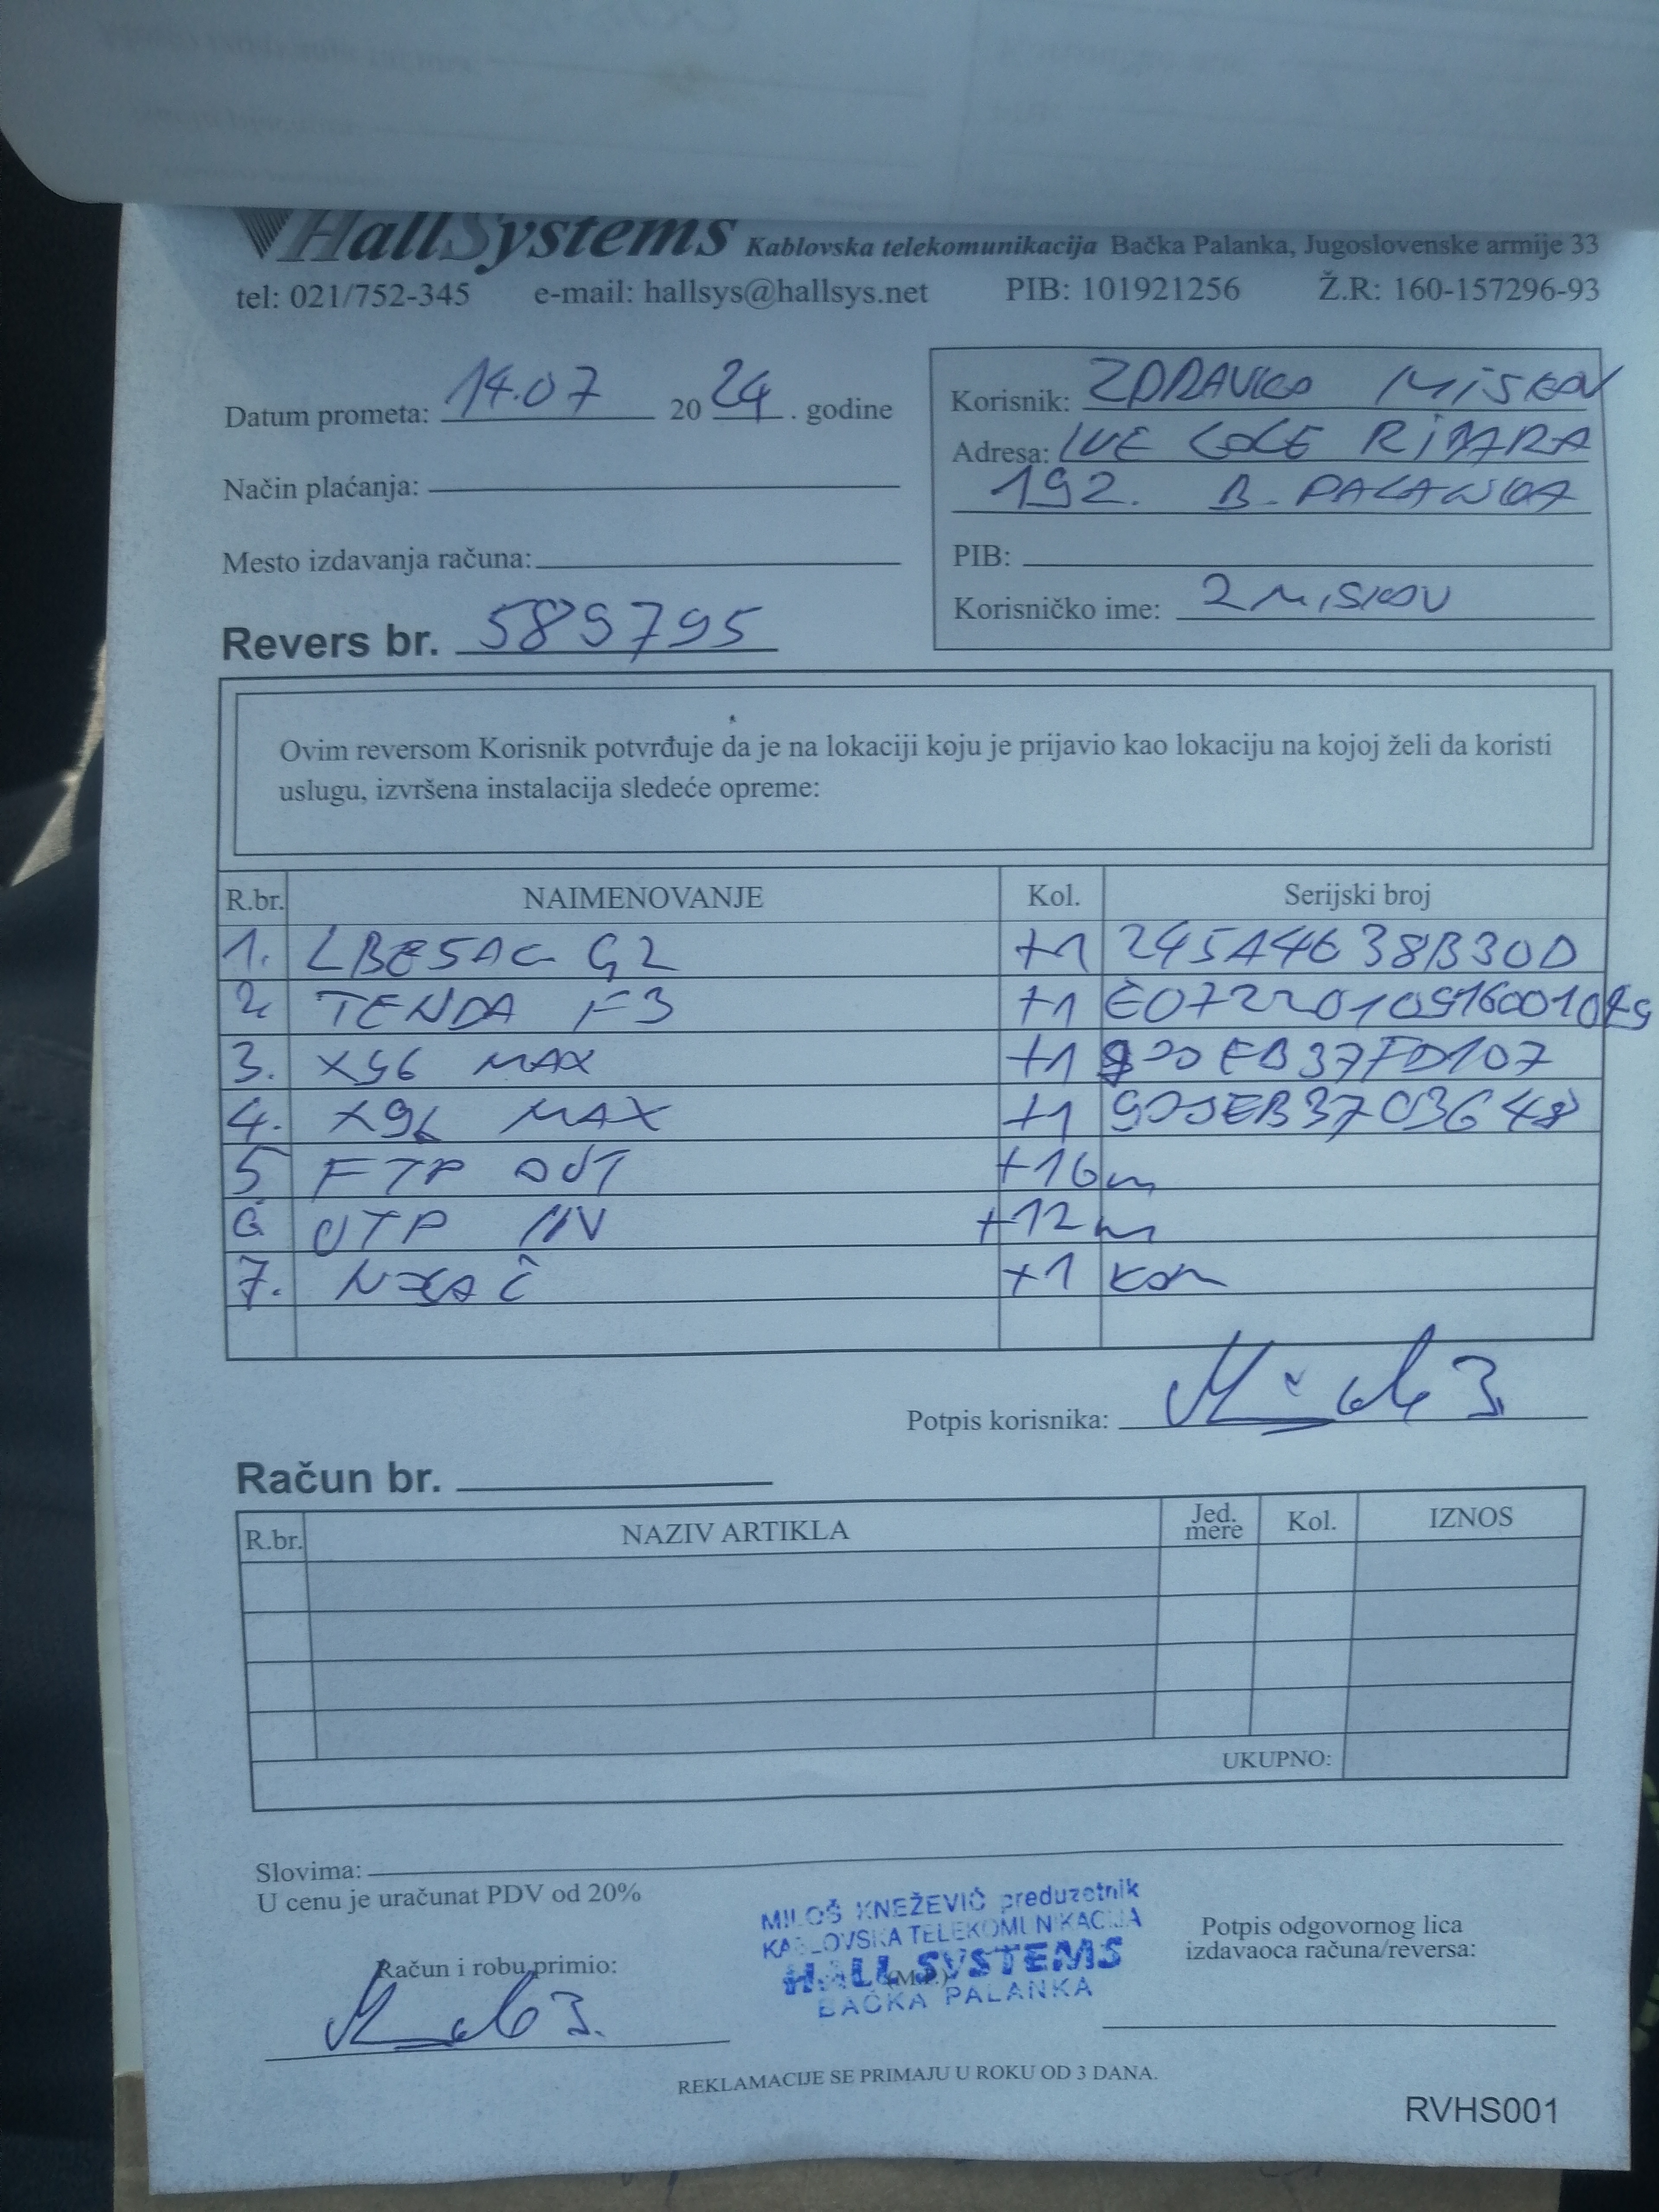 HallSystems Kablovska telekomunikacija Bačka Palanka, Jugoslovenske armije 33
tel: 021/752-345 e-mail: hallsys@hallsys.net PIB: 101921256 Ž.R: 160-157296-93
Datum prometa: 14.07 2024. godine
Način plaćanja:
Mesto izdavanja računa:
Revers br. 589795
Korisnik: ZDRAVKO MISKOV
Adresa: IVE LOLE RIBARA
192. B. PALANKA
PIB:
Korisničko ime: ZMISKOV
Ovim reversom Korisnik potvrđuje da je na lokaciji koju je prijavio kao lokaciju na kojoj želi da koristi
uslugu, izvršena instalacija sledeće opreme:
R.br. NAIMENOVANJE Kol. Serijski broj
1. LBE5AC G2 +1 245A4638B30D
2. TENDA F3 +1
3. X96 MAX +1
4. X96 MAX +1
5 FTP OUT +16m
6 UTP IN +12m
7. NOSAČ +1 kom
Potpis korisnika:
Račun br.
R.br. NAZIV ARTIKLA Jed. mere Kol. IZNOS
UKUPNO:
Slovima:
U cenu je uračunat PDV od 20%
MILOŠ KNEŽEVIĆ preduzetnik
KABLOVSKA TELEKOMUNIKACIJA
HALL SYSTEMS
(M.P.)
BAČKA PALANKA
Račun i robu primio:
Potpis odgovornog lica
izdavaoca računa/reversa:
REKLAMACIJE SE PRIMAJU U ROKU OD 3 DANA.
RVHS001